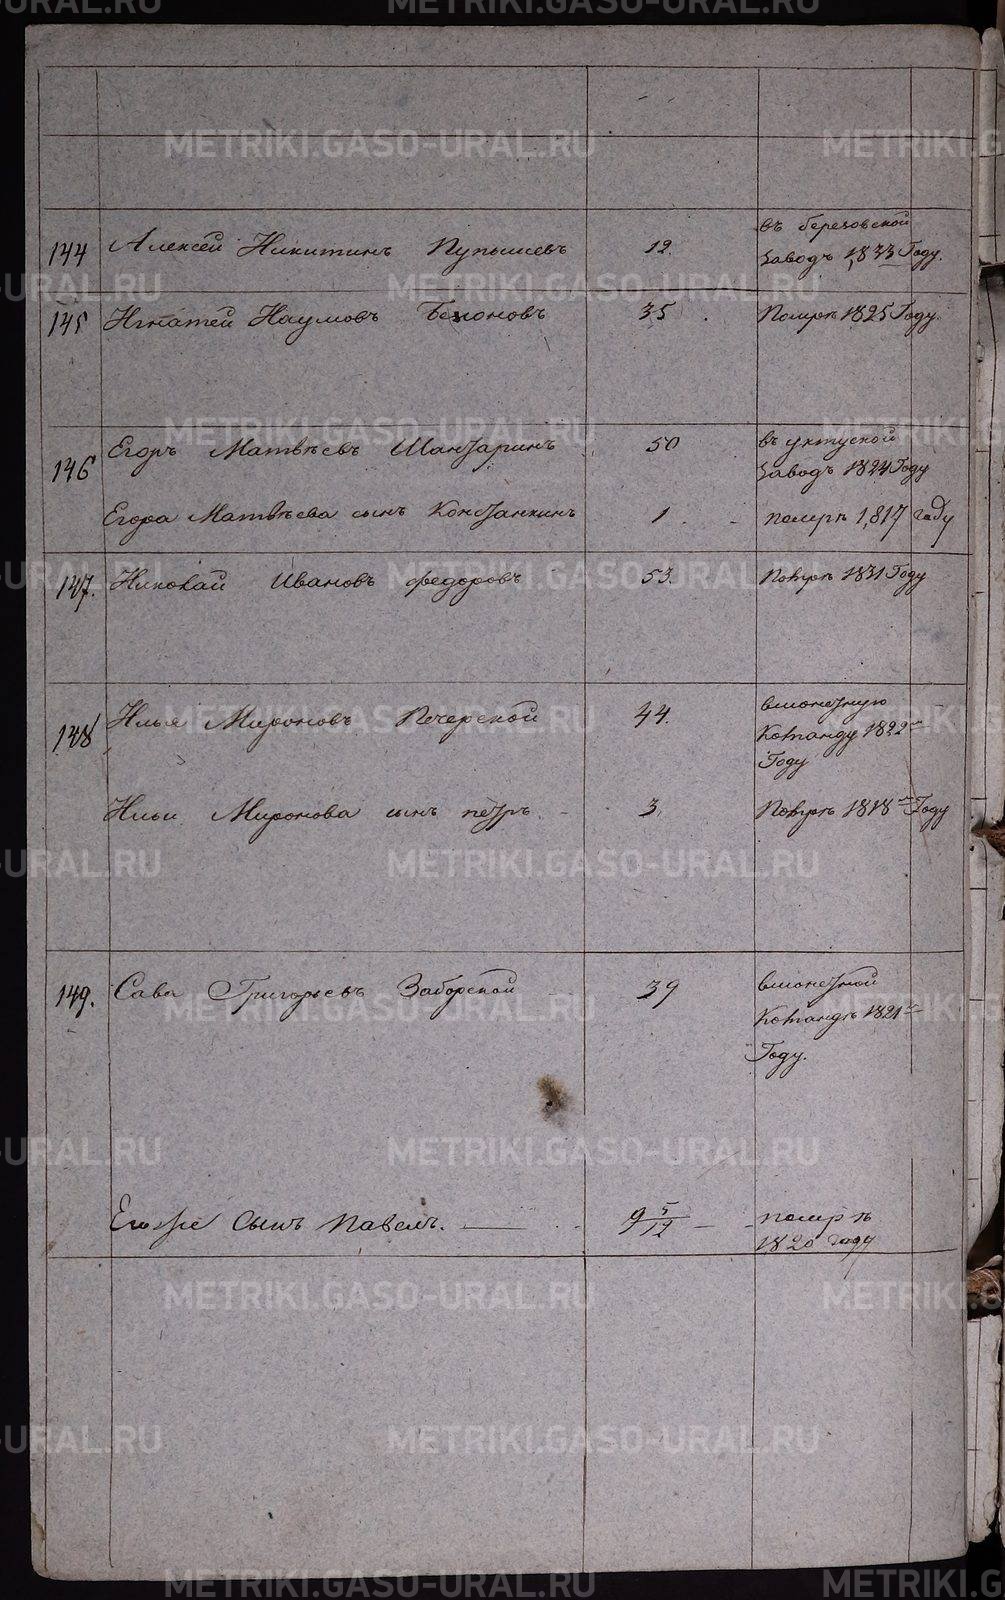 144 Алексей Никитинъ Пупышевъ 12. въ березовской
заводъ 1833 Году.
145 Игнатей Наумовъ 35 Помре 1825 Году.
146 Егоръ Матвѣевъ 50 въ уктуской
заводъ 1824 Году
Егора Матвѣева сынъ Констанкинъ 1 помрѣ 1,817 году
147. Николай Ивановъ федоровъ 53. Помре 1831 Году
148 Илья Мироновъ Печерской 44. вмонетную
команду 1822 го
Году
Ильи Миронова сынъ петръ 3 Помре 1818 го Году
149. Сава Григорьевъ Заборской 39 вмонетной
Командѣ 1821 го
Году.
Егоже сынъ Павелъ. 9 5/12 помрѣ
1820 году
METRIKI.GASO-URAL.RU